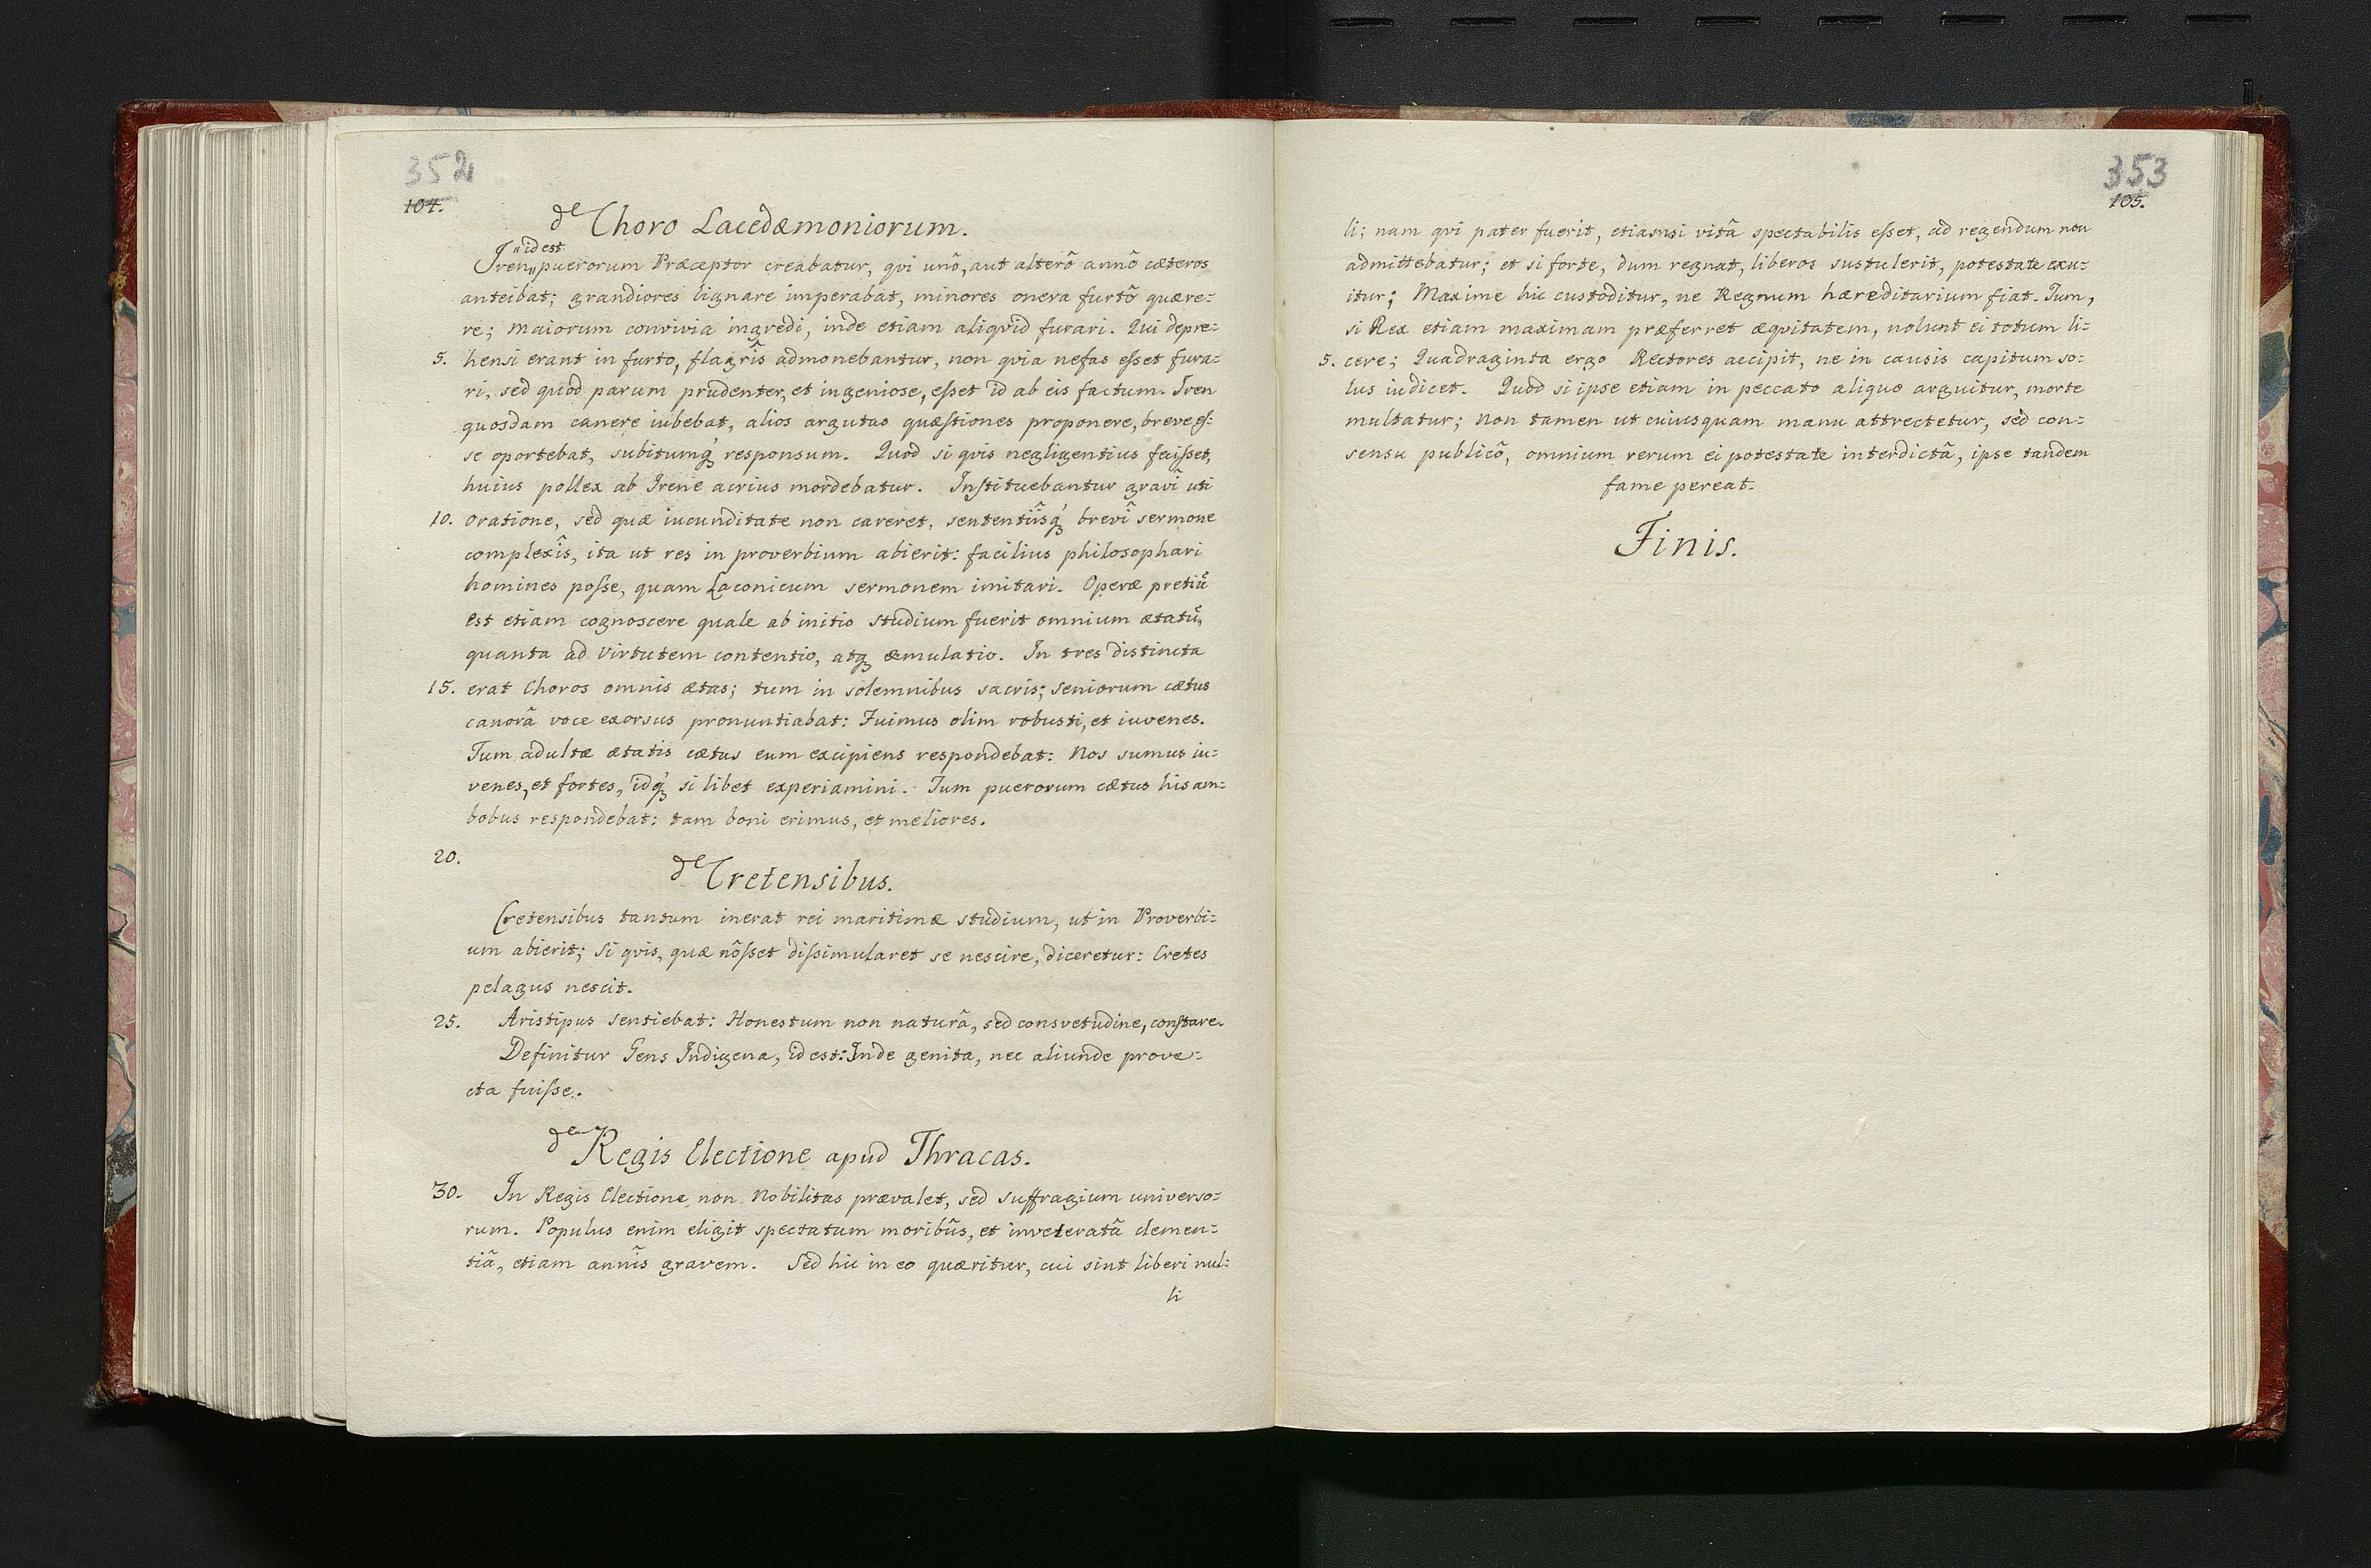 352
104.
de Choro Lacedæmoniorum.
Iren„ „id est puerorum Præceptor creabatur, qvi unô, aut alterô annô cæteros
anteibat; grandiores lignare imperabat, minores onera furtô quære:
re; maiorum convivia ingredi, inde etiam aliqvid furari. Qui depre:
5. hensi erant in furto, flagrîs admonebantur, non qvia nefas eſset fura:
ri, sed quod parum prudenter, et ingeniose, eſset id ab eis factum. Iren
quosdam canere iubebat, alios argutas quæſtiones proponere, breve eſ:
se oportebat, subitumq́ responsum. Quod si qvis negligentius feciſset,
huius pollex ab Irene acrius mordebatur. Inſtituebantur gravî uti
10. oratione, sed quæ iucunditate non careret, sententiîsq́ brevî sermone
complexîs, ita ut res in proverbium abierit: facilius philosophari
homines poſse, quam Laconicum sermonem imitari. Operæ pretiũ
est etiam cognoscere quale ab initio studium fuerit omnium ætatũ,
quanta ad virtutem contentio, atq æmulatio. In tres distincta
15. erat Choros omnis ætas; tum in solemnibus sacris; seniorum cætus
canorâ voce exorsus pronuntiabat: Fuimus olim robusti, et iuvenes.
Tum adultæ ætatis cætus eum excipiens respondebat: Nos sumus iu:
venes, et fortes, idq́ si libet experiamini. Tum puerorum cætus his am:
bobus respondebat: tam boni erimus, et meliores.
20.
de Cretensibus.
Cretensibus tantum inerat rei maritimæ studium, ut in Proverbi:
um abierit; si qvis, quæ nôſset diſsimularet se nescire, diceretur: Cretes
pelagus nescit.
25. Aristipus sentiebat: Honestum non naturâ, sed consvetudine, conſtare.
Definitur Gens Indigena, id est: Inde genita, nec aliunde prove:
cta fuiſse.
de Regis Electione apud Thracas.
30. In Regis Electione non Nobilitas prævalet, sed suffragium universo:
rum. Populus enim eligit spectatum moribûs, et inveteratâ clemen:
tiâ, etiam annîs gravem. Sed hic in eo quæritur, cui sint liberi nul:
li
353
105.
li; nam qvi pater fuerit, etiamsi vitâ spectabilis eſset, ad regendum non
admittebatur; et si forte, dum regnat, liberos sustulerit, potestate exu:
itur; Maxime hic custoditur, ne Regnum hæreditarium fiat. Tum,
si Rex etiam maximam præferret æqvitatem, nolunt ei totum li:
5. cere; Quadraginta ergo Rectores accipit, ne in causis capitum so:
lus iudicet. Quod si ipse etiam in peccato aliquo arguitur, morte
multatur; non tamen ut cuiusquam manu attrectetur, sed con:
sensu publicô, omnium rerum ei potestate interdictâ, ipse tandem
fame pereat.
Finis.